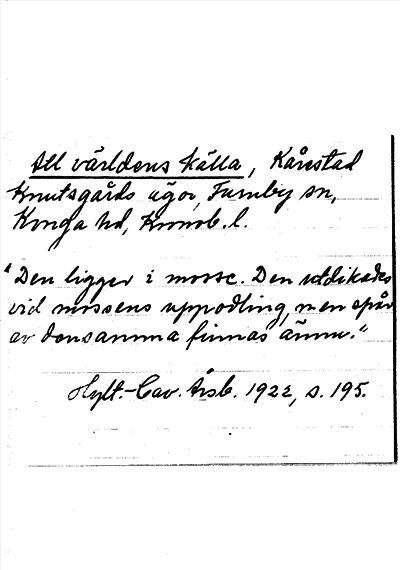 All världens källa, Kårestad
Knutsgårds ägor, Furuby sn,
Konga hd, Kronob. l.
"Den ligger i mosse. Den utdikades
vid mossens uppodling, men spår
av densamma finnas ännu."
Hylt.-Cav. Årsb. 1922, s. 195.